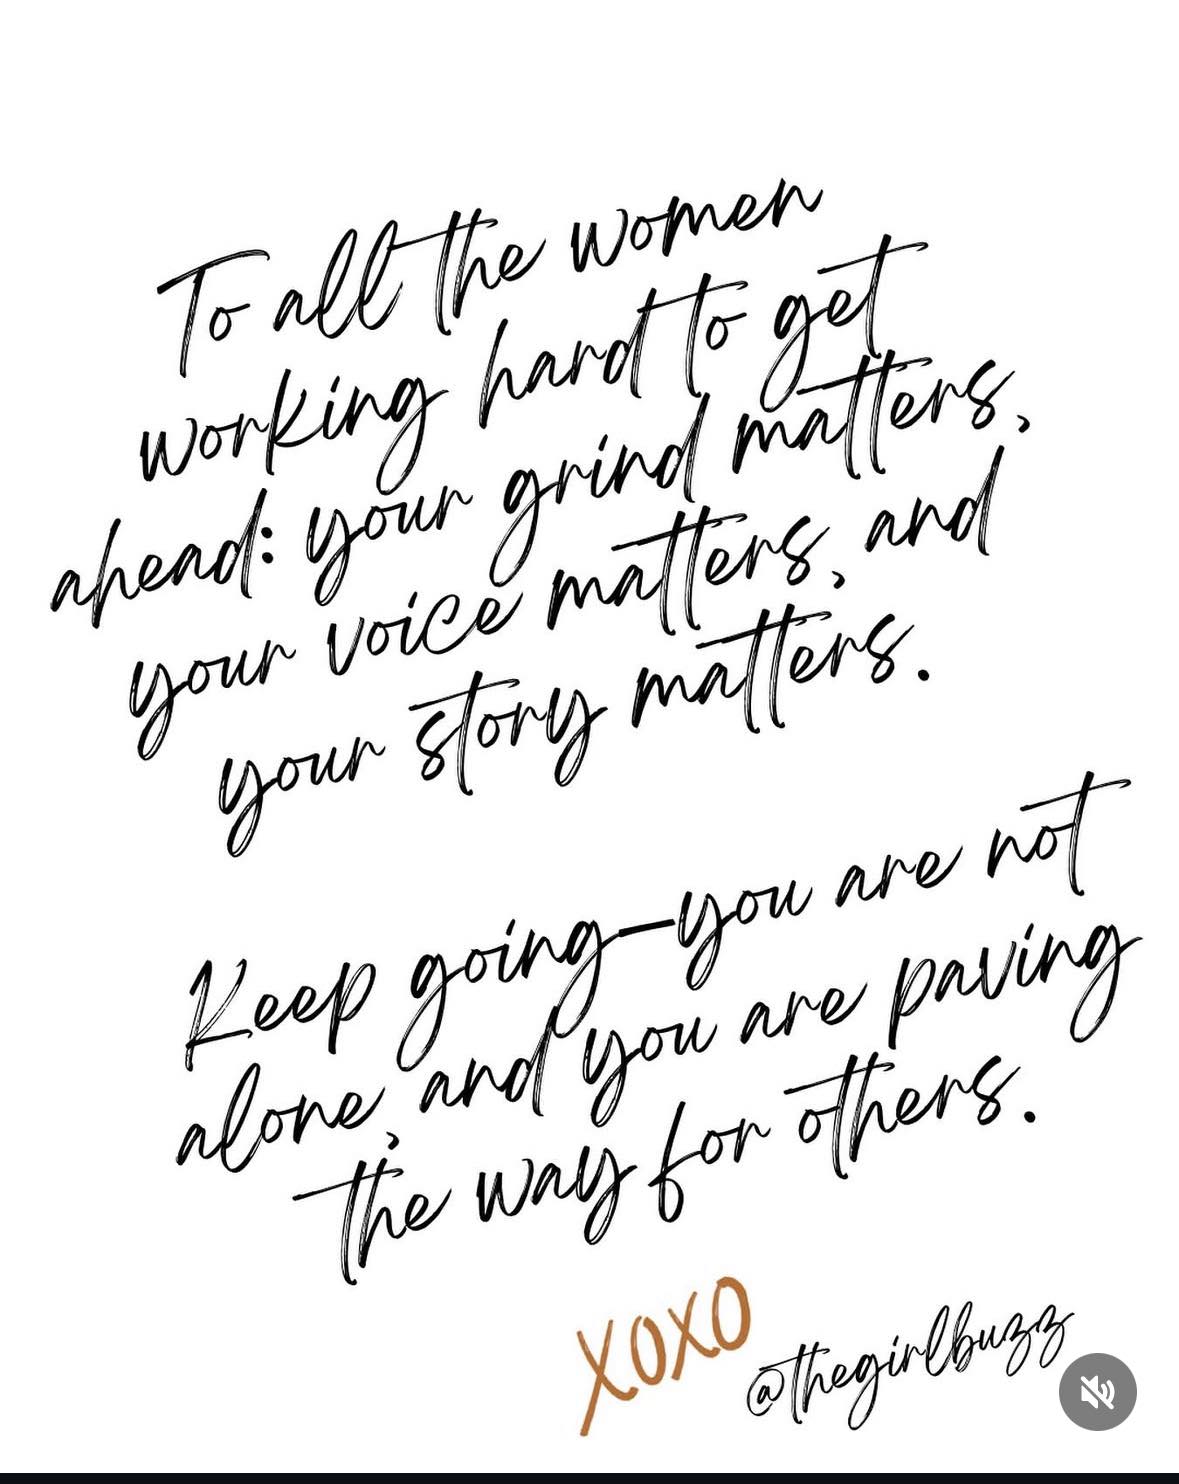 To all the women
working hard to get
ahead: your grind matters,
your voice matters, and
your story matters.
Keep going—you are not
alone, and you are paving
the way for others.
XOXO
@thegirlbuzz